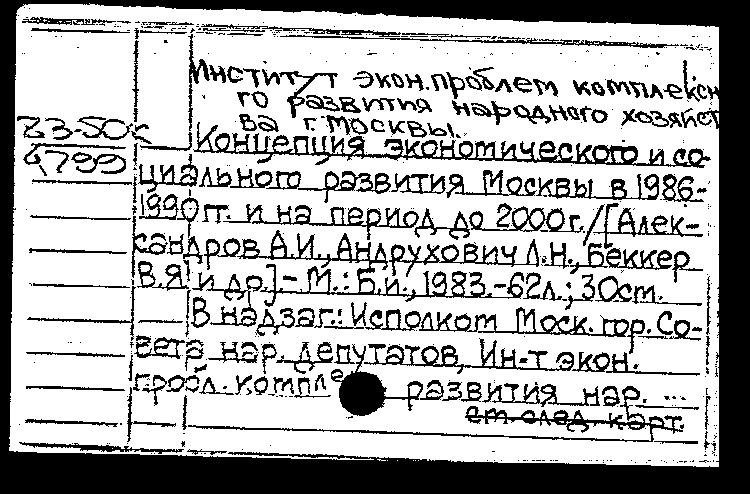 Институт экон. проблем комплексн
го развития народного хозяйст
ва г. Москвы.
Z3-50к
4799
Концепция экономического и со-
циального развития Москвы в 1986-
1990 гг. и на период до 2000 г. / [Алек-
сандров А.И., Андрухович Л.Н., Беккер
В.Я. и др.] - М.: Б.и., 1983. - 62л.; 30см.
В надзаг.: Исполком Моск. гор. Со-
вета нар. депутатов, Ин-т экон.
пробл. компле развития нар. ...
см след. карт.